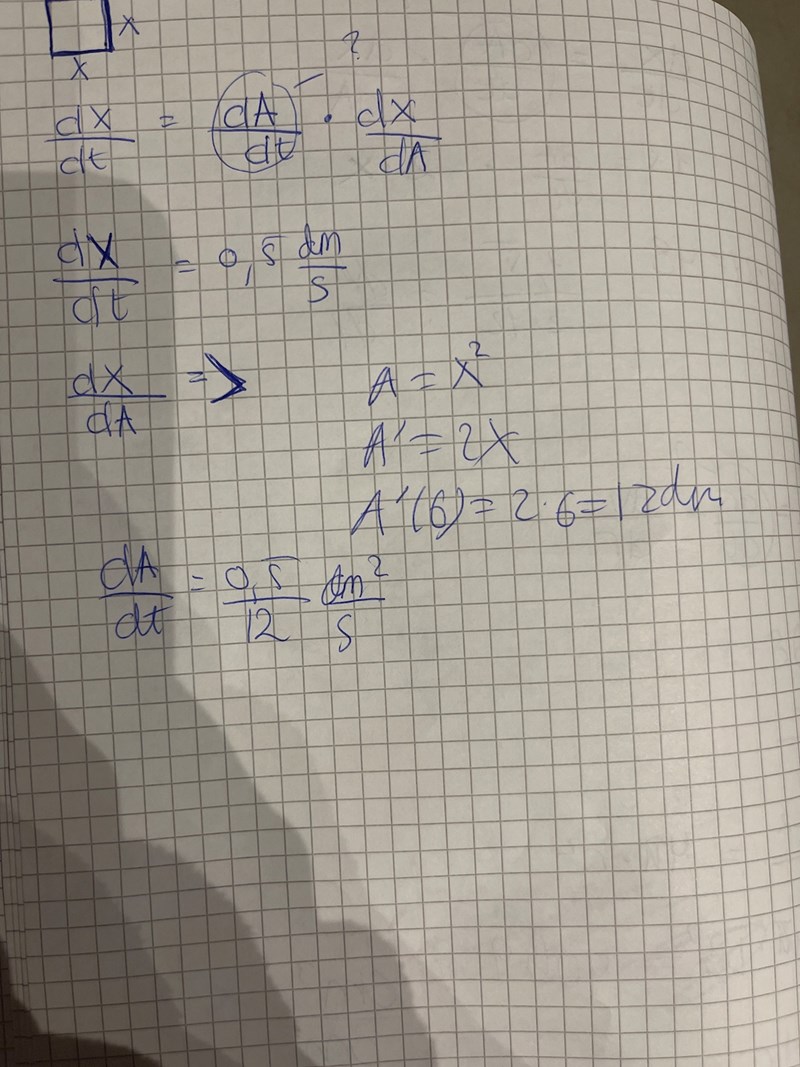 x
x
?
dx/dt = dA/dt · dx/dA
dx/dt = 0,5 dm/s
dx/dA => A = x²
A' = 2x
A'(6) = 2·6 = 12dm
dA/dt = 0,5/12 dm²/s